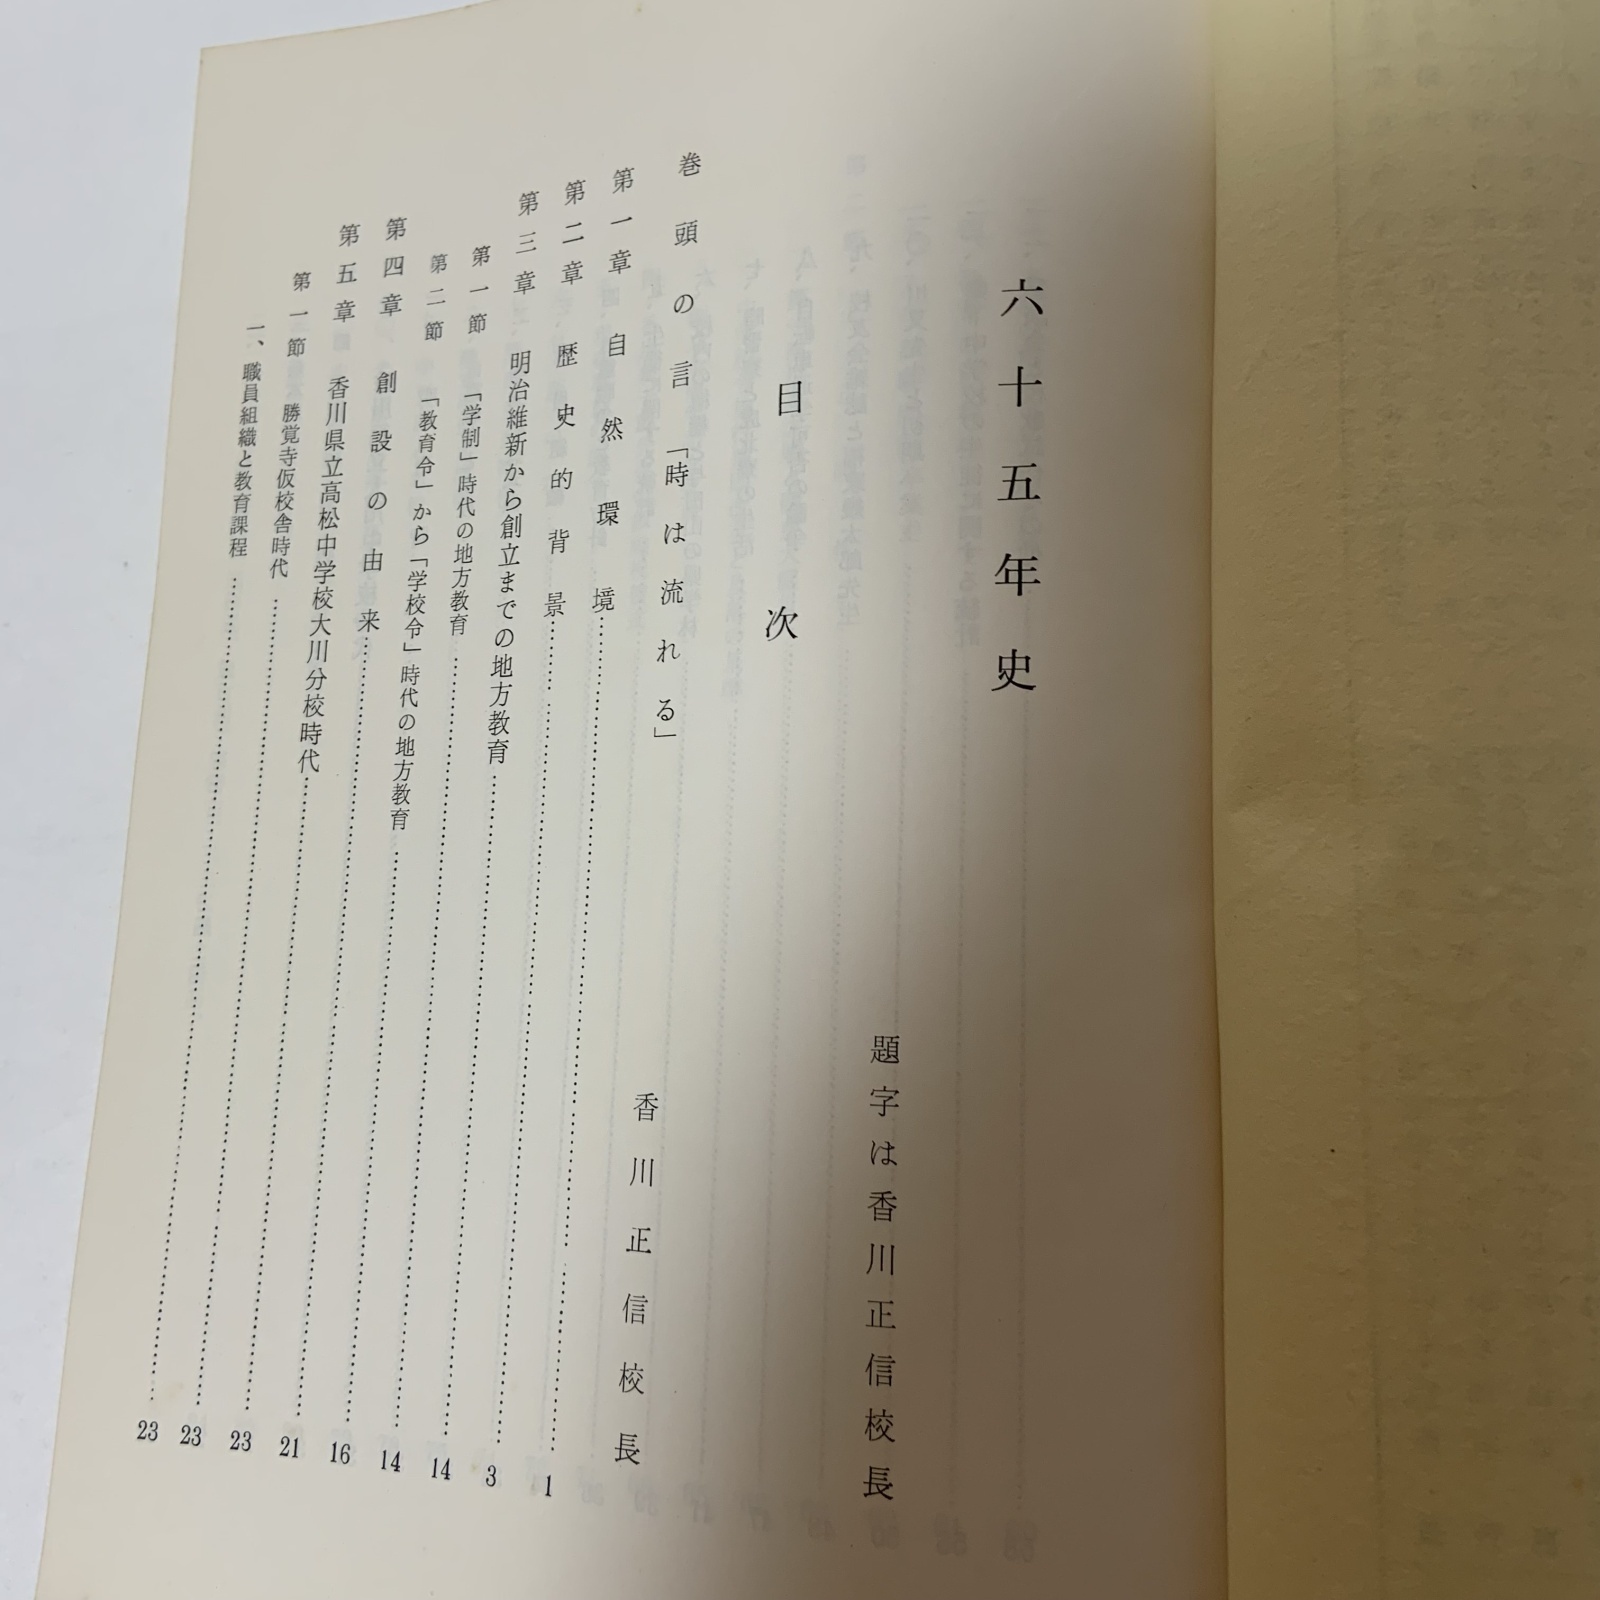 六十五年史
題字は香川正信校長
目次
巻頭の言「時は流れる」 香川正信校長
第一章 自然環境 1
第二章 歴史的背景 3
第三章 明治維新から創立までの地方教育 14
第一節 「学制」時代の地方教育 14
第二節 「教育令」から「学校令」時代の地方教育 16
第四章 創設の由来 21
第五章 香川県立高松中学校大川分校時代 23
第一節 勝覚寺仮校舎時代 23
一、職員組織と教育課程 23